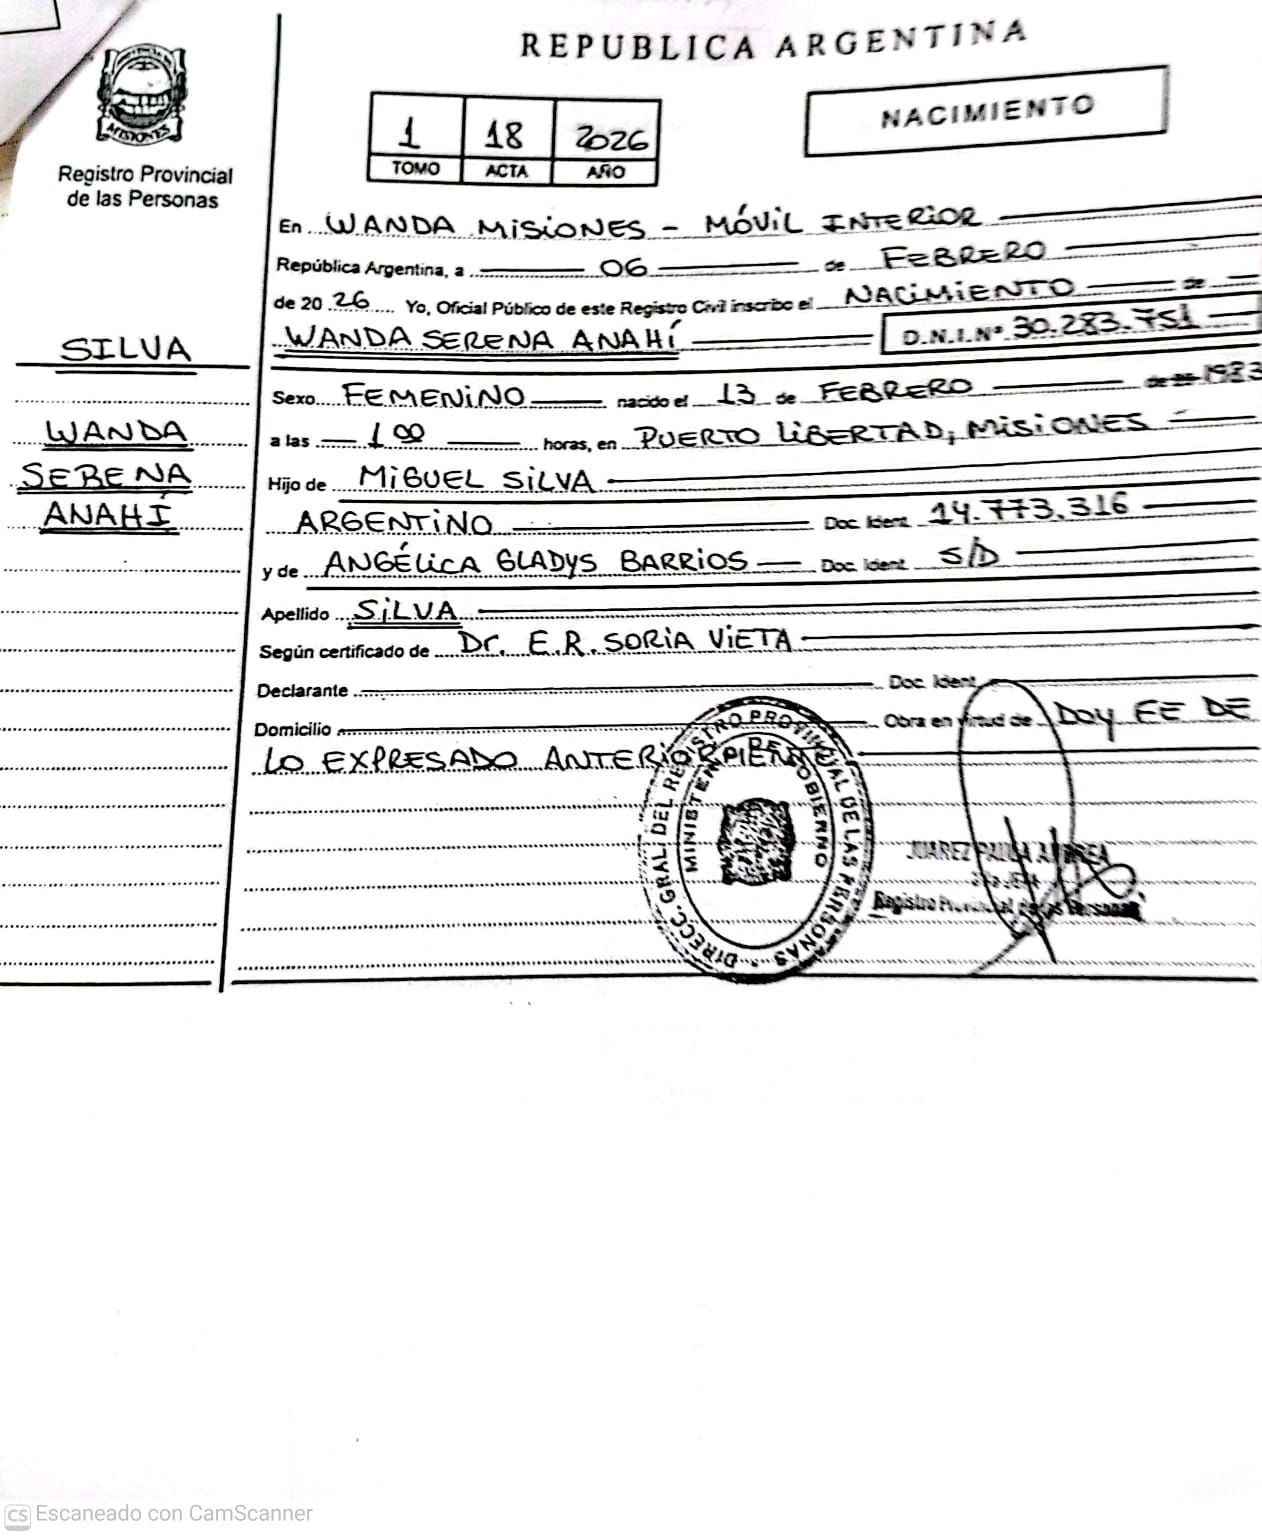 REPUBLICA ARGENTINA
MISIONES
Registro Provincial
de las Personas
1 18 2026
TOMO ACTA AÑO
NACIMIENTO
En WANDA MISIONES - MÓVIL INTERIOR
República Argentina, a 06 de FEBRERO
de 20 26 Yo, Oficial Público de este Registro Civil inscribo el NACIMIENTO de
WANDA SERENA ANAHÍ D.N.I.Nº 30.283.751
SILVA
WANDA
SERENA
ANAHÍ
Sexo FEMENINO nacido el 13 de FEBRERO de 20 1983
a las 1 00 horas, en PUERTO LIBERTAD, MISIONES
Hijo de MIGUEL SILVA
ARGENTINO Doc. Ident. 14.773.316
y de ANGÉLICA GLADYS BARRIOS Doc. Ident. S/D
Apellido SILVA
Según certificado de Dr. E.R. SORIA VIETA
Declarante Doc. Ident.
Domicilio Obra en virtud de DOY FE DE
LO EXPRESADO
DIRECC. GRAL. DEL REGISTRO PROVINCIAL DE LAS PERSONAS
GOBIERNO
JUAREZ PAULA ANDREA
Registro Provincial de las Personas
CS Escaneado con CamScanner